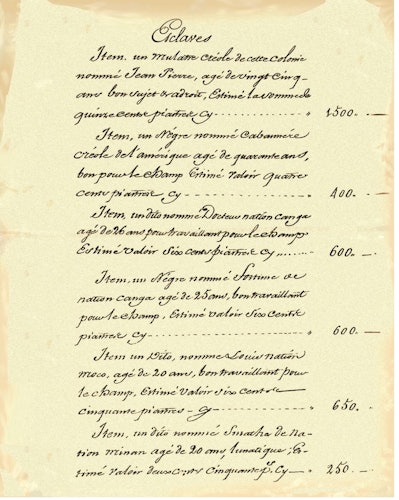 Esclaves
Item, un mulatre créole de cette colonie
nommé Jean Pierre, agé de vingt cinq-
ans bon sujet & adroit, Estimé la somme de
quinze cents piastres cy " 1500. —
Item, un Négre nommé
créole de l'amérique agé de quarante ans,
bon pour le champ Estimé valoir quatre
cents piastres cy " 400. —
Item, un dito nommé Docteur nation canga
agé de 26 ans pour travaillant pour le champ
Estimé valoir six cents piastres cy " 600. —
Item, un Négre nommé de
nation canga agé de 25 ans, bon travaillant
pour le champ, Estimé valoir six cents
piastres cy " 600. —
Item, un Dito, nommé Louis nation
moco, agé de 20 ans, bon travaillant pour
le champ, Estimé valoir six cents
cinquante piastres - cy " 650. —
Item, un dito nommé de na-
tion minan agé de 20 ans, lunatique, Es-
timé valoir deux cents cinquante ps. Cy " 250. —